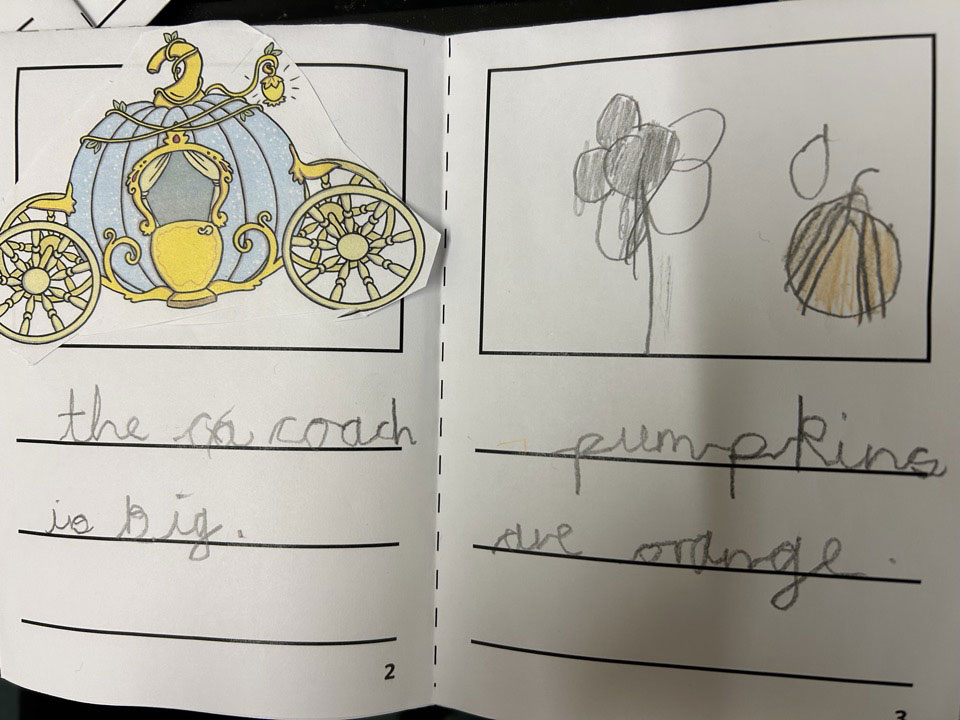 the ca coach
is big.
2
pumpkins
are orange.
3